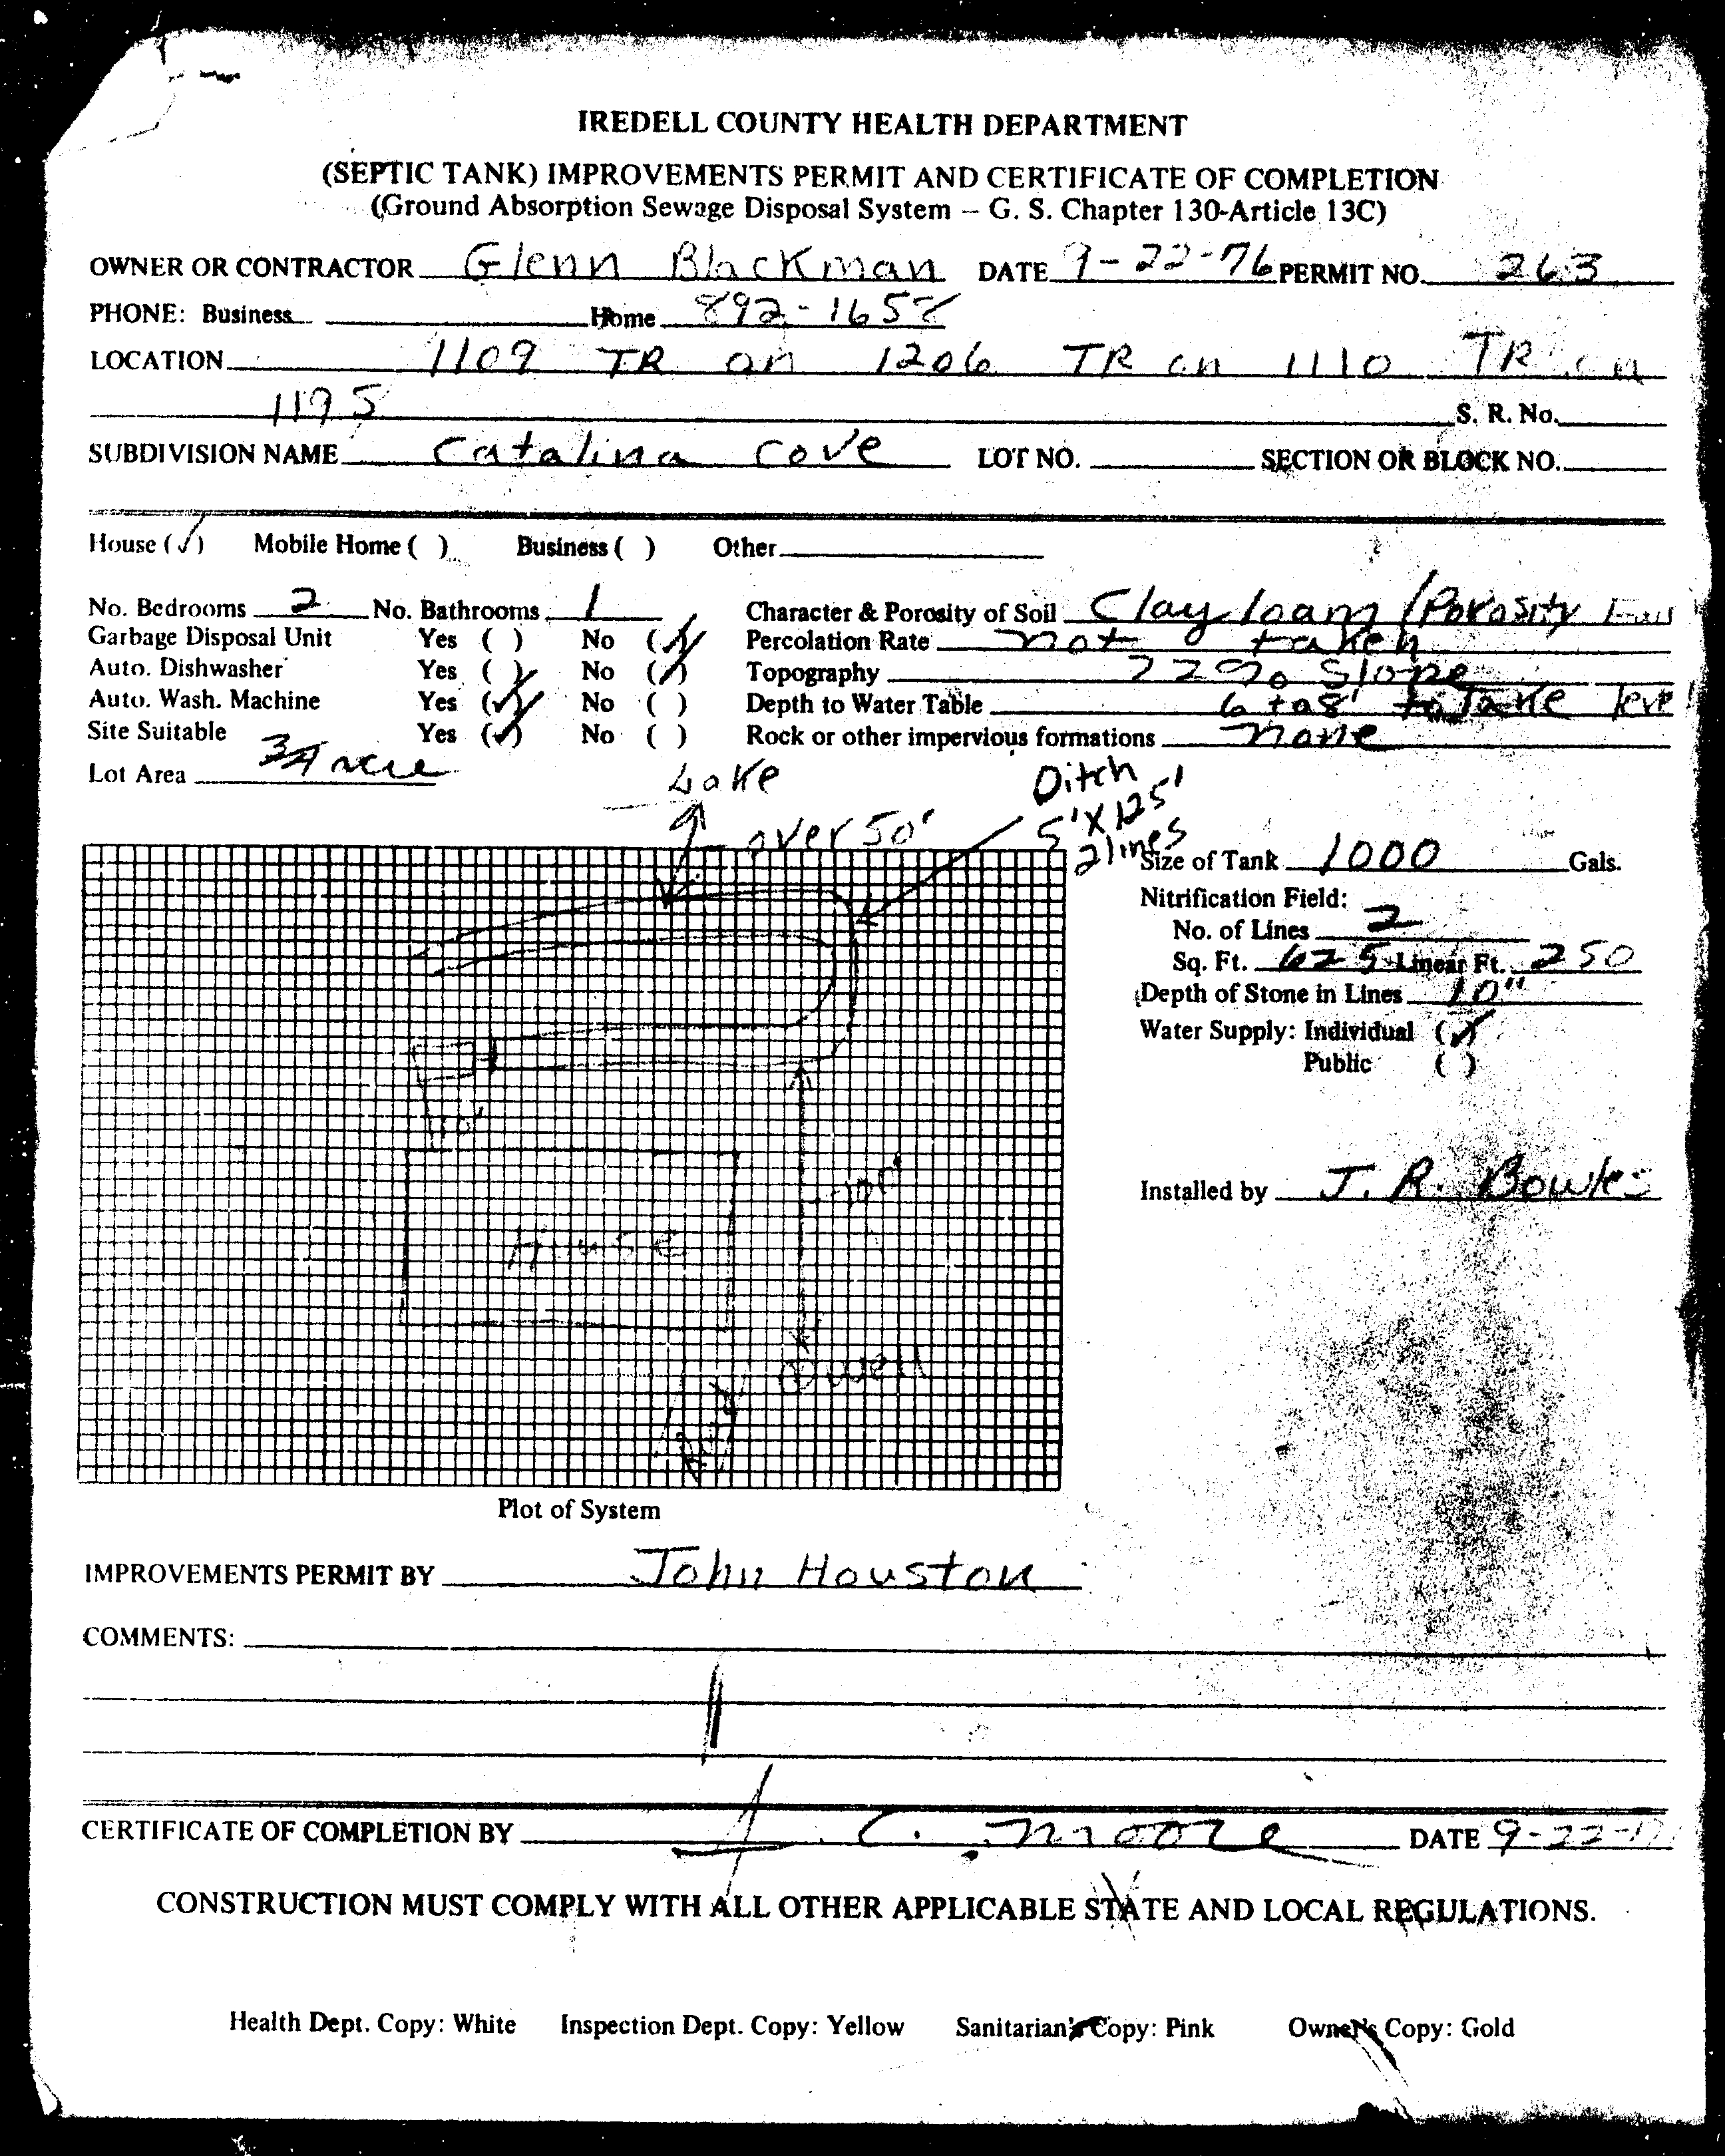 IREDELL COUNTY HEALTH DEPARTMENT
(SEPTIC TANK) IMPROVEMENTS PERMIT AND CERTIFICATE OF COMPLETION
(Ground Absorption Sewage Disposal System – G. S. Chapter 130-Article 13C)
OWNER OR CONTRACTOR Glenn Blackman DATE 9-22-76 PERMIT NO. 263
PHONE: Business Home 892-1658
LOCATION 1109 TR on 1206 TR on 1110 TR on
1195 S. R. No.
SUBDIVISION NAME Catalina Cove LOT NO. SECTION OR BLOCK NO.
House (✓) Mobile Home ( ) Business ( ) Other
No. Bedrooms 2 No. Bathrooms 1 Character & Porosity of Soil Clay loam / Porosity
Garbage Disposal Unit Yes ( ) No (✓) Percolation Rate not taken
Auto. Dishwasher Yes ( ) No (✓) Topography 22% Slope
Auto. Wash. Machine Yes (✓) No ( ) Depth to Water Table 6 to 8' to lake level
Site Suitable Yes (✓) No ( ) Rock or other impervious formations none
Lot Area 3/4 acre
Lake
Ditch
5'X125'
2 lines
over 50'
Size of Tank 1000 Gals.
Nitrification Field:
No. of Lines 2
Sq. Ft. 625 Linear Ft. 250
Depth of Stone in Lines 10"
Water Supply: Individual (✓)
Public ( )
10'
100'
House
Well
Installed by J. R. Bowles
Plot of System
IMPROVEMENTS PERMIT BY John Houston
COMMENTS:
CERTIFICATE OF COMPLETION BY J. C. Moore DATE 9-22-
CONSTRUCTION MUST COMPLY WITH ALL OTHER APPLICABLE STATE AND LOCAL REGULATIONS.
Health Dept. Copy: White Inspection Dept. Copy: Yellow Sanitarian's Copy: Pink Owner's Copy: Gold